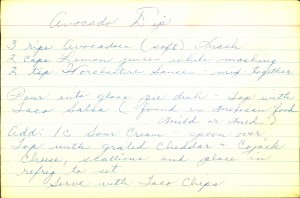 Avocado Dip
3 ripe Avocadoes (soft) Mash
2 caps Lemon juice while mashing
2 tsp Worchestire Sauce - mix together
Pour into glass pie dish - Top with
Taco Salsa (found in Mexican food
Mild or Med)
Add: 1 C Sour Cream - spoon over
Top with grated Cheddar - Cojack
Cheese, scallions and place in
refrig to set
Serve with Taco Chips